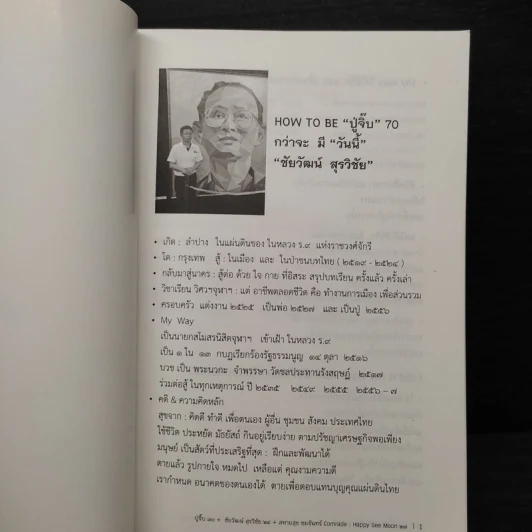 HOW TO BE "ปู่จิ๊บ" 70
กว่าจะ มี "วันนี้"
"ชัยวัฒน์ สุรวิชัย"
• เกิด : ลำปาง ในแผ่นดินของ ในหลวง ร.๙ แห่งราชวงศ์จักรี
• โต : กรุงเทพ สู้ : ในเมือง และ ในป่าชนบทไทย ( ๒๕๑๙ - ๒๕๒๔ )
• กลับมาสู่นคร : สู้ต่อ ด้วย ใจ กาย ที่อิสระ สรุปบทเรียน ครั้งแล้ว ครั้งเล่า
• วิชาเรียน วิศวฯจุฬาฯ : แต่ อาชีพตลอดชีวิต คือ ทำงานการเมือง เพื่อส่วนรวม
• ครอบครัว แต่งงาน ๒๕๒๕ เป็นพ่อ ๒๕๒๗ และเป็นปู่ ๒๕๕๖
• My Way
เป็นนายกสโมสรนิสิตจุฬาฯ เข้าเฝ้า ในหลวง ร.๙
เป็น ๑ ใน ๑๓ กบฏเรียกร้องรัฐธรรมนูญ ๑๔ ตุลา ๒๕๑๖
บวช เป็น พระนวกะ จำพรรษา วัดชลประทานรังสฤษฎ์ ๒๕๑๗
ร่วมต่อสู้ ในทุกเหตุการณ์ ปี ๒๕๓๕ ๒๕๔๙ ๒๕๕๕ ๒๕๕๖ - ๗
• คติ & ความคิดหลัก
สุขจาก : คิดดี ทำดี เพื่อตนเอง ผู้อื่น ชุมชน สังคม ประเทศไทย
ใช้ชีวิต ประหยัด มัธยัสถ์ กินอยู่เรียบง่าย ตามปรัชญาเศรษฐกิจพอเพียง
มนุษย์ เป็นสัตว์ที่ประเสริฐที่สุด : ฝึกและพัฒนาได้
ตายแล้ว รูปกายใจ หมดไป เหลือแต่ คุณงามความดี
เรากำหนด อนาคตของตนเองได้ ตายเพื่อตอบแทนบุญคุณแผ่นดินไทย
ปู่จิ๊บ ๗๐ + ชัยวัฒน์ สุรวิชัย ๒๘ + สหายสุข ชมจันทร์ Comrade : Happy See Moon ๒๘ | 1